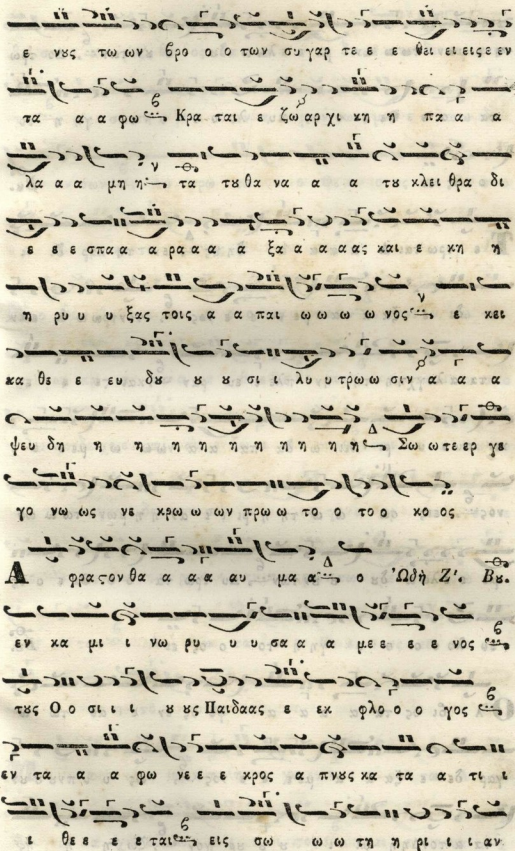 ε νȣς τω ων βρο ο ο των συ γαρ τε ε ε θει ει εις ε εν
τα α α φω Κρα ται ε ζω αρ χι κη η πα α α
λα α α μη η τα τȣ θα να α α α τȣ κλει θρα δι
ε ε ε σπα α α ρα α α α ξα α α α ας και ε κη η
η ρυ υ υ ξας τοις α α παι ω ω ω ω νος ε κει
κα θε ε ευ δȣ ȣ ȣ σι ι λυ υ τρω ω σιν α α α
ψευ δη η η η η η η η η η η Σω ω τε ερ γε
γο νω ως νε κρω ω ων πρω ω το ο το ο κο ος
Α φραςον θα α α α αυ μα α ο Ὠδὴ Ζ΄. Βȣ.
εν κα μι ι νω ρυ υ υ σα α α με ε ε ε νος
τȣς Ο ο σι ι ȣ ȣς Παιδα ας ε εκ φλο ο ο γος
εν τα α α φω νε ε ε κρος α πνȣς κα τα α τι ι
ι θε ε ε ε ται εις σω ω ω τη η ρι ι ι αν